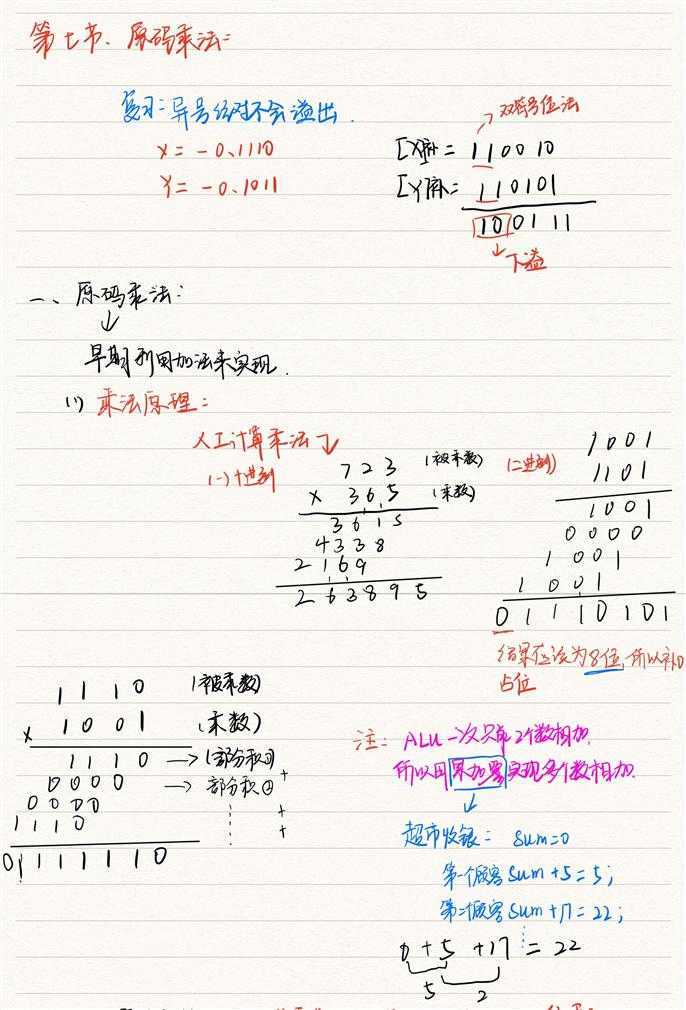 第七节、原码乘法:
复习:异号绝对不会溢出.
X = -0.1110
Y = -0.1011
双符号位法
[X]补= 110010
[Y]补= 110101
100111
下溢
一、原码乘法:
早期利用加法来实现.
(1) 乘法原理:
人工计算乘法
(一)十进制
723 (被乘数)
× 365 (乘数)
3615
4338
2169
263895
(二进制)
1001
1101
1001
0000
1001
1001
01110101
结果应该为8位,所以补0
占位
1110 (被乘数)
× 1001 (乘数)
1110 → (部分积①)
0000 → 部分积② +
0000 +
1110 +
01111110
注: ALU一次只能2个数相加.
所以用累加器实现多个数相加.
超市收银: sum=0
第一个顾客 sum+5=5;
第二个顾客 sum+17=22;
0+5+17=22
5 2